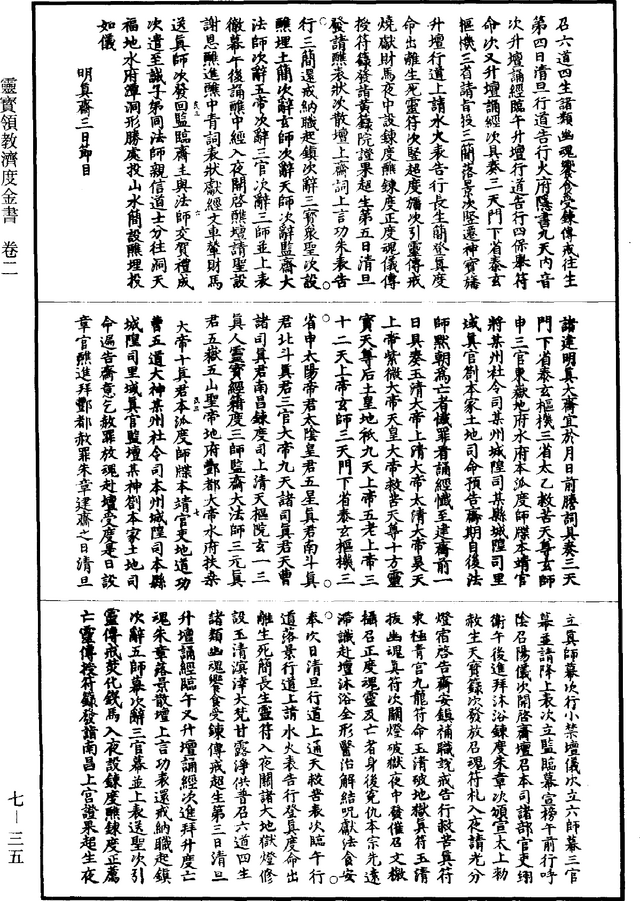 召六道四生諸類幽魂饗食受鍊傳戒往生
第四日清旦行道告行火府隱書九天内音
次升壇誦經臨午升壇行道告行四條舉符
命次又升壇誦經次具奏三天門下省泰玄
樞機三省請官投三簡落景次堅遷神寶旛
升壇行道上請水火表告行長生簡登真度
命出離生死靈符次堅超度旛次引靈傳戒
燒獻財馬夜中設鍊度醮鍊度正度魂儀傳
授符籙發請黃籙院證果超生第五日清旦
發請醮表狀次散壇上齋詞上言功朱表告
行三簡還戒納職起鎮次辭三寶衆聖次設
醮埋土簡次辭玄師次辭天師次辭監齋大
法師次辭五帝次辭三官次辭三師並上表
徹幕午後誦醮中經入夜開啓醮壇請聖設
謝恩醮進醮中青詞表狀獻經文車輦財馬
送真師次發回監臨齋主與法師交賀禮成
次遣至誠子弟同法師親信道士分往洞天
福地水府潭洞形勝處投山水簡設醮埋投
如儀
明真齋三日節目
諸建明真大齋宜於月日前謄詞具奏三天
門下省泰玄樞機三省太乙救苦天尊玄師
申三官東嶽地府水府本派度師牒本靖官
將某州社令司某州城隍司某縣城隍司里
域真官剏本家土地司命預告齋期自後法
師熙朝為亡者懺罪看誦經懺至建齋前一
日具奏玉清大帝上清大帝太清大帝昊天
上帝紫微大帝天皇大帝救苦天尊十方靈
寶天尊后土皇地祇九天上帝五老上帝三
十二天上帝玄師三天門下省泰玄樞機三
省申太陽帝君太陰皇君五星真君南斗真
君北斗真君三官大帝九天諸司真君天曹
諸司真君南昌鍊度司上清天樞院玄一三
真人靈寶經籍度三師監齋大法師三元真
君五嶽五山聖帝地府酆都大帝水府扶桑
大帝十真君本派度師牒本靖官吏地道功
曹五道大神某州社令司本州城隍司本縣
城隍司里域真官監壇某神剏本家土地司
命遍告齋意乞赦罪放魂赴壇受度是日設
章官醮進拜酆都赦罪朱章建齋之日清旦
立真師幕次行小禁壇儀次立六師幕三官
幕並請降上表次立監臨幕宣榜午前行呼
陰召陽儀次開啓齋壇召本司諸部官吏翊
衛午後進拜沐浴鍊度朱章次頒宣太上勑
赦生天寶籙次發放召魂符札入夜請光分
燈宿啓告齋安鎮補職說戒告行救苦真符
東極青宮九龍符命玉清破地獄真符玉清
拔幽魂真符次關燈破獄夜中發催召文檄
攝召正度魂靈及亡者身後寃仇本宗先遠
滯識赴壇沐浴全形醫治解結呪獻法食安
奉次日清旦行道上通天救苦表次臨午行
道落景行道上請水火表告行登真度命出
離生死簡長生靈符入夜關諸大地獄燈修
設玉清溟涬大梵甘露淨供普召六道四生
諸類幽魂饗食受鍊傳戒超生第三日清旦
升壇誦經臨午又升壇誦經次進拜升度亡
魂朱章落景散壇上言功表還戒納職起鎮
次辭五師幕次辭三官幕並上表送聖次引
靈傳戒焚化錢馬入夜設鍊度醮鍊度正薦
亡靈傳授符籙發請南昌上宮證果超生夜
靈寶領教濟度金書 卷二
七—三五